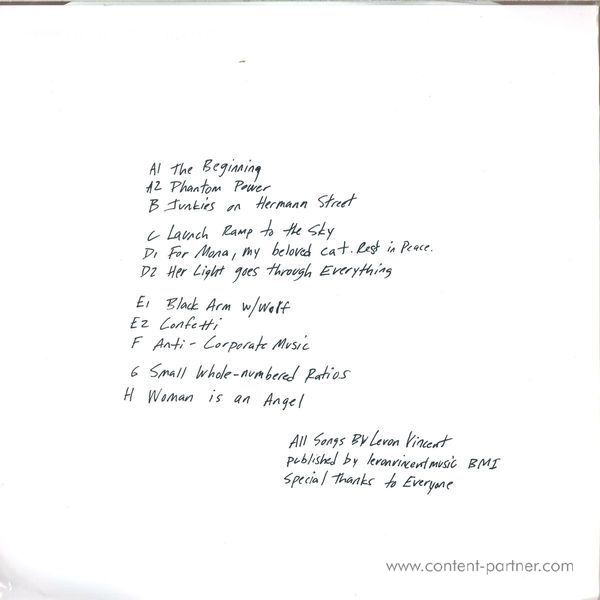 A1 The Beginning
A2 Phantom Power
B Junkies on Hermann Street
C Launch Ramp to the Sky
D1 For Mona, my beloved cat. Rest in Peace.
D2 Her Light goes through Everything
E1 Black Arm w/Wolf
E2 Confetti
F Anti-Corporate Music
G Small Whole-numbered Ratios
H Woman is an Angel
All Songs By Levon Vincent
published by levonvincentmusic BMI
Special Thanks to Everyone
www.content-partner.com